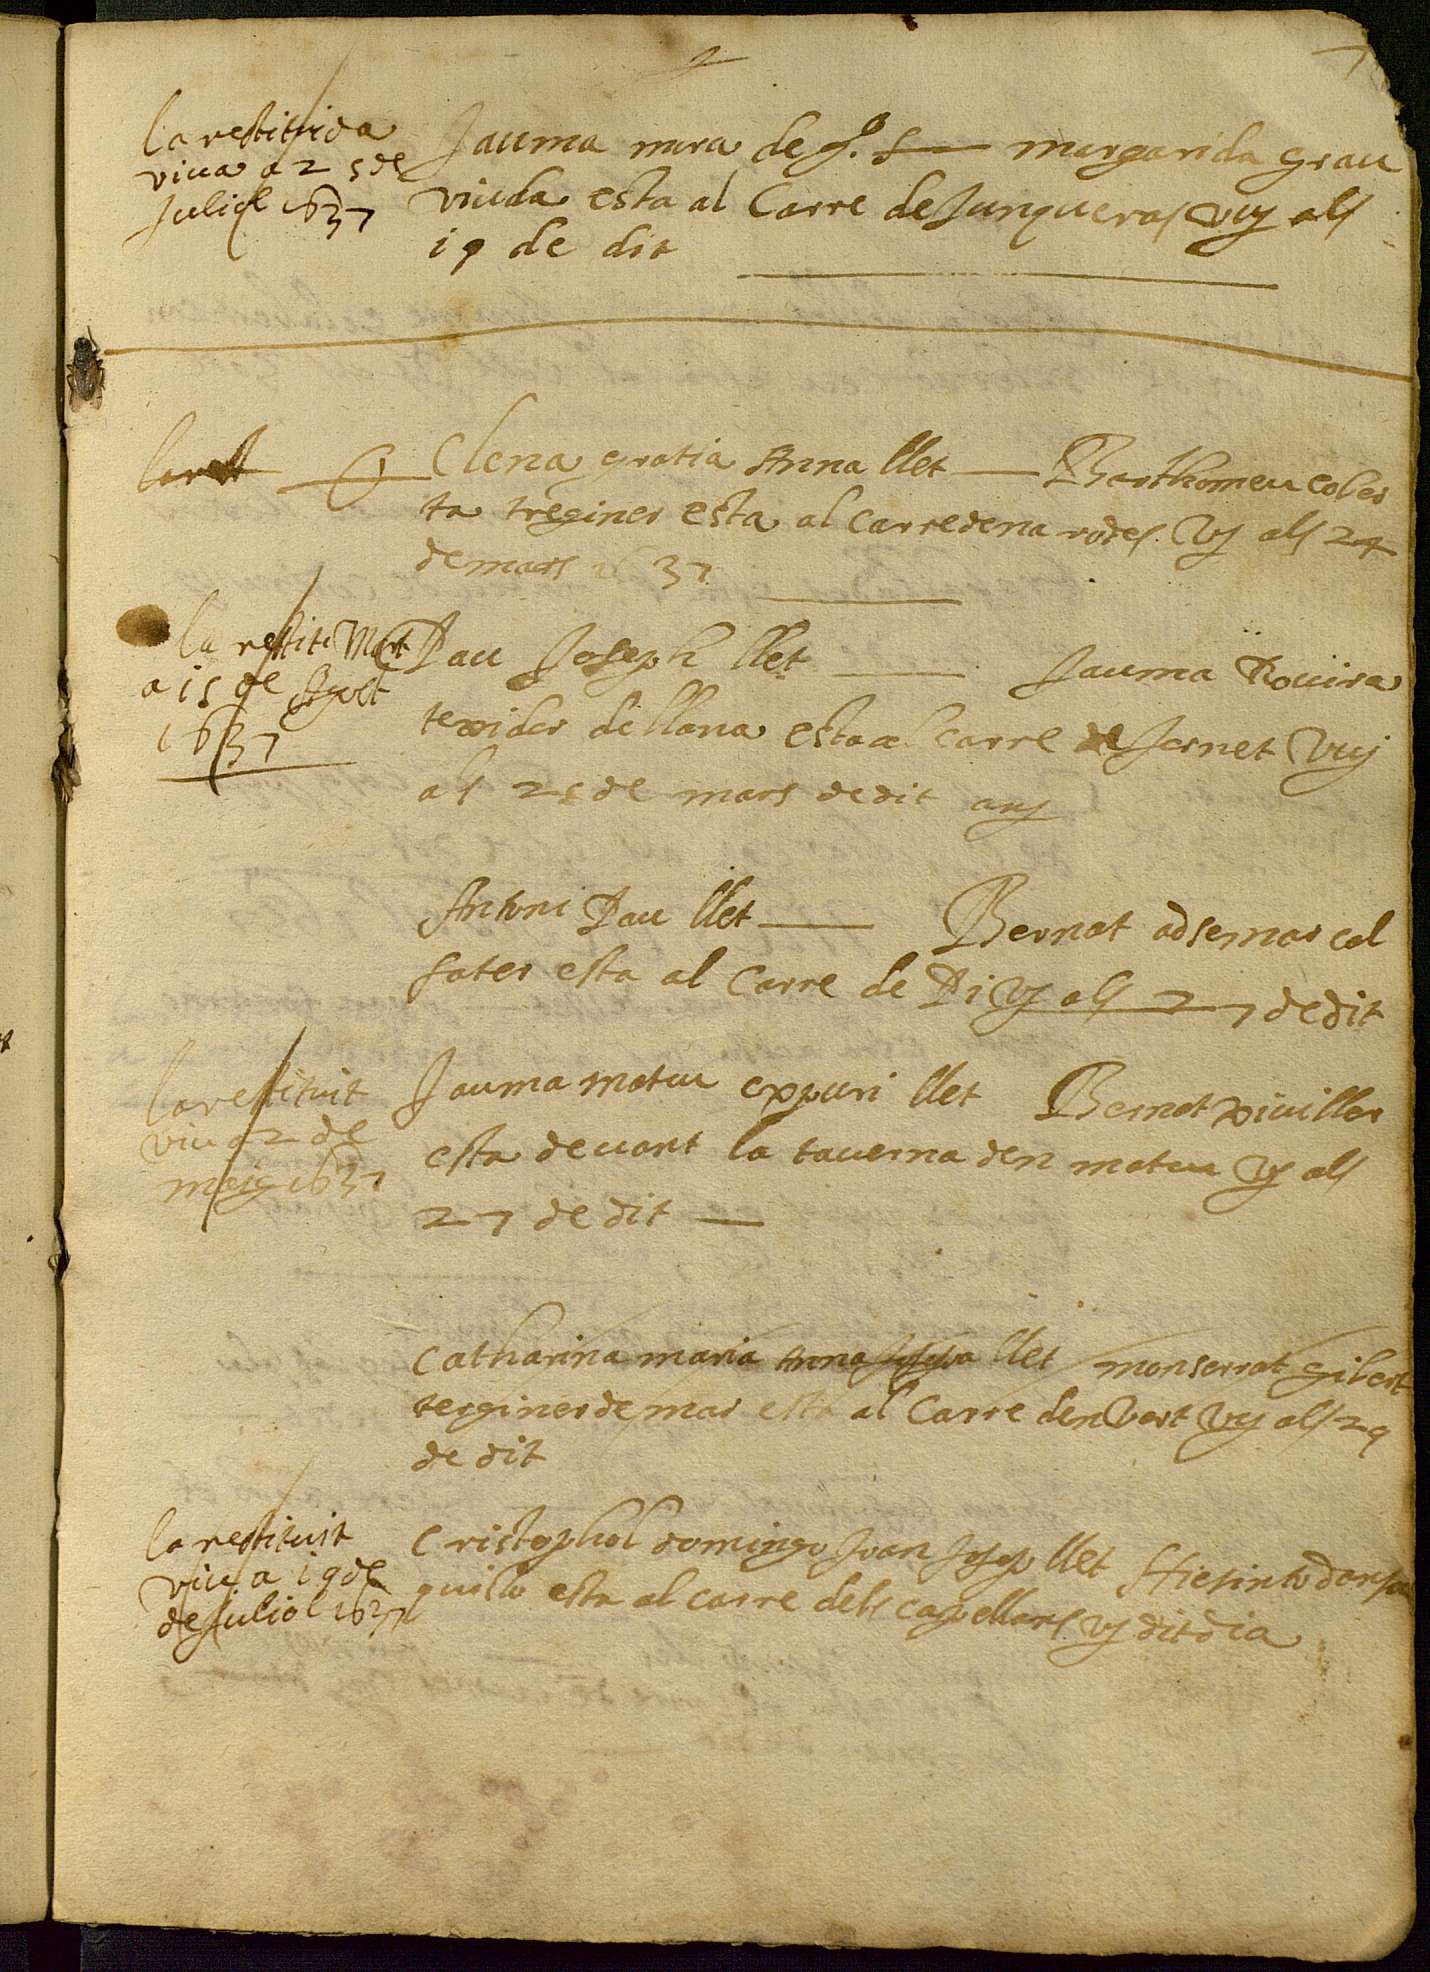 7
la restituida
viua a 25 de
Juliol 1637
Jauma mira de margarida grau
viuda esta al Carre de Junqueras vuy als
19 de dit
Elena gratia Anna llet Barthomeu cober
ta treginer esta al carre dena rodes vy als 24
de mars 1637
la restiti Mort
a 15 de Agost
1637
Pau Joseph llet Jauma Rouira
texidor de llana esta al carre de Jernet vuy
als 25 de mars de dit any
Antoni Pau llet Bernat adsemar cal
sater esta al Carre de Pi vy als 27 de dit
la restituit
viu a 2 de
meig 1637
Jauma mateu expuri llet Bernat xiuillar
esta deuant la tauerna den mateu vy als
27 de dit
Catharina maria Anna Josepa llet monserrat gibert
terginer de mar esta al Carre den Vort vy als 29
de dit
la restituit
viu a 19 de
de Juliol 1637
Cristophol domingo Juan Josep llet Hiesinto
esta al carre dels capellans vy dit dia